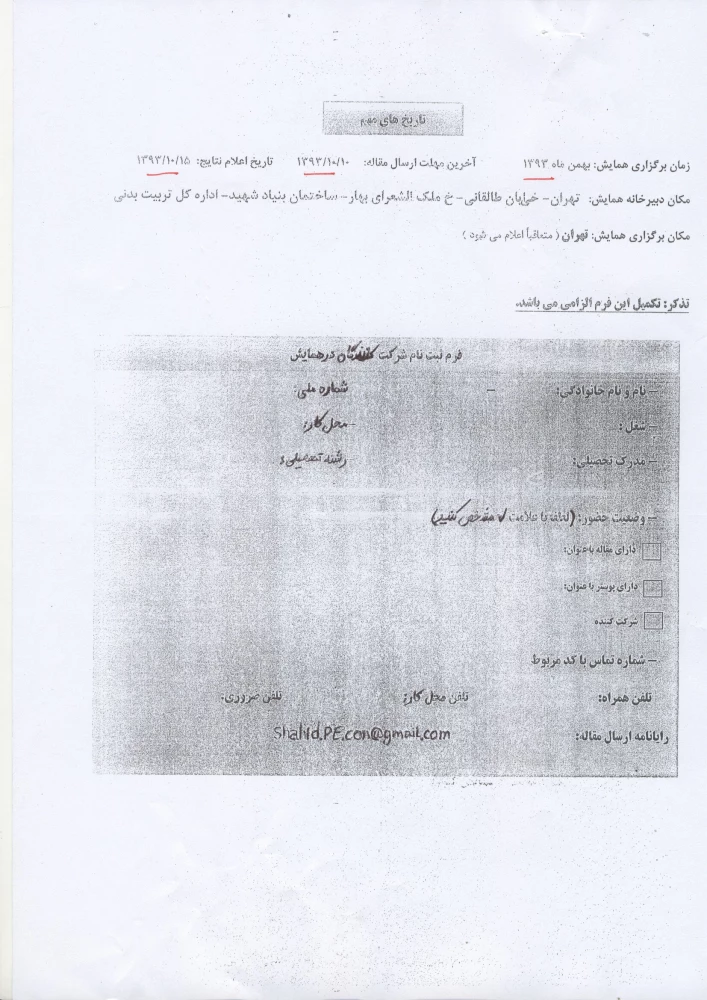 تاریخ های مهم
زمان برگزاری همایش: بهمن ماه ۱۳۹۳ آخرین مهلت ارسال مقاله: ۱۳۹۳/۱۰/۱۰ تاریخ اعلام نتایج: ۱۳۹۳/۱۰/۱۵
مکان دبیرخانه همایش: تهران- خیابان طالقانی- خ ملک الشعرای بهار- ساختمان بنیاد شهید- اداره کل تربیت بدنی
مکان برگزاری همایش: تهران ( متعاقباً اعلام می شود )
تذکر: تکمیل این فرم الزامی می باشد.
فرم ثبت نام شرکت کنندگان درهمایش
– نام و نام خانوادگی: – شماره ملی:
– شغل : –محل کار:
– مدرک تحصیلی: رشته تحصیلی:
– وضعیت حضور: (لطفا با علامت ✓ مشخص کنید)
دارای مقاله باعنوان:
دارای پوستر با عنوان:
شرکت کننده
– شماره تماس با کد مربوط
تلفن همراه: تلفن محل کار: تلفن ضروری:
رایانامه ارسال مقاله: Shahid.PE.con@gmail.com